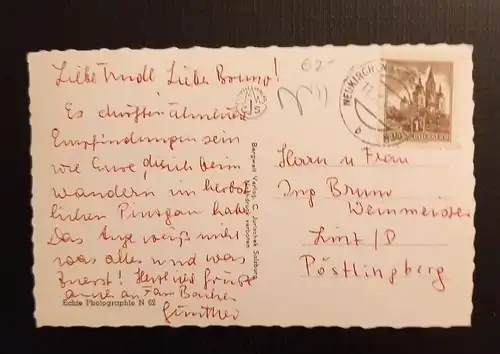 Liebe Trude Lieber Bruno!
Es dürften ähnliche
Empfindungen sein
wie Eure, die ich beim
wandern im herbst
lichen Pinzgau habe.
Das Auge weiß nicht
was alles und was
zuerst! Herzliche Grüße
auch an Fam
Günther
Echte Photographie N 62
Bergwelt Verlag C. Jurischek Salzburg
Nachdruck verboten
JS
NEUKIRCHEN
Herrn u Frau
Ing Bruno
Weinmeister
Linz/D
Pöstlingberg